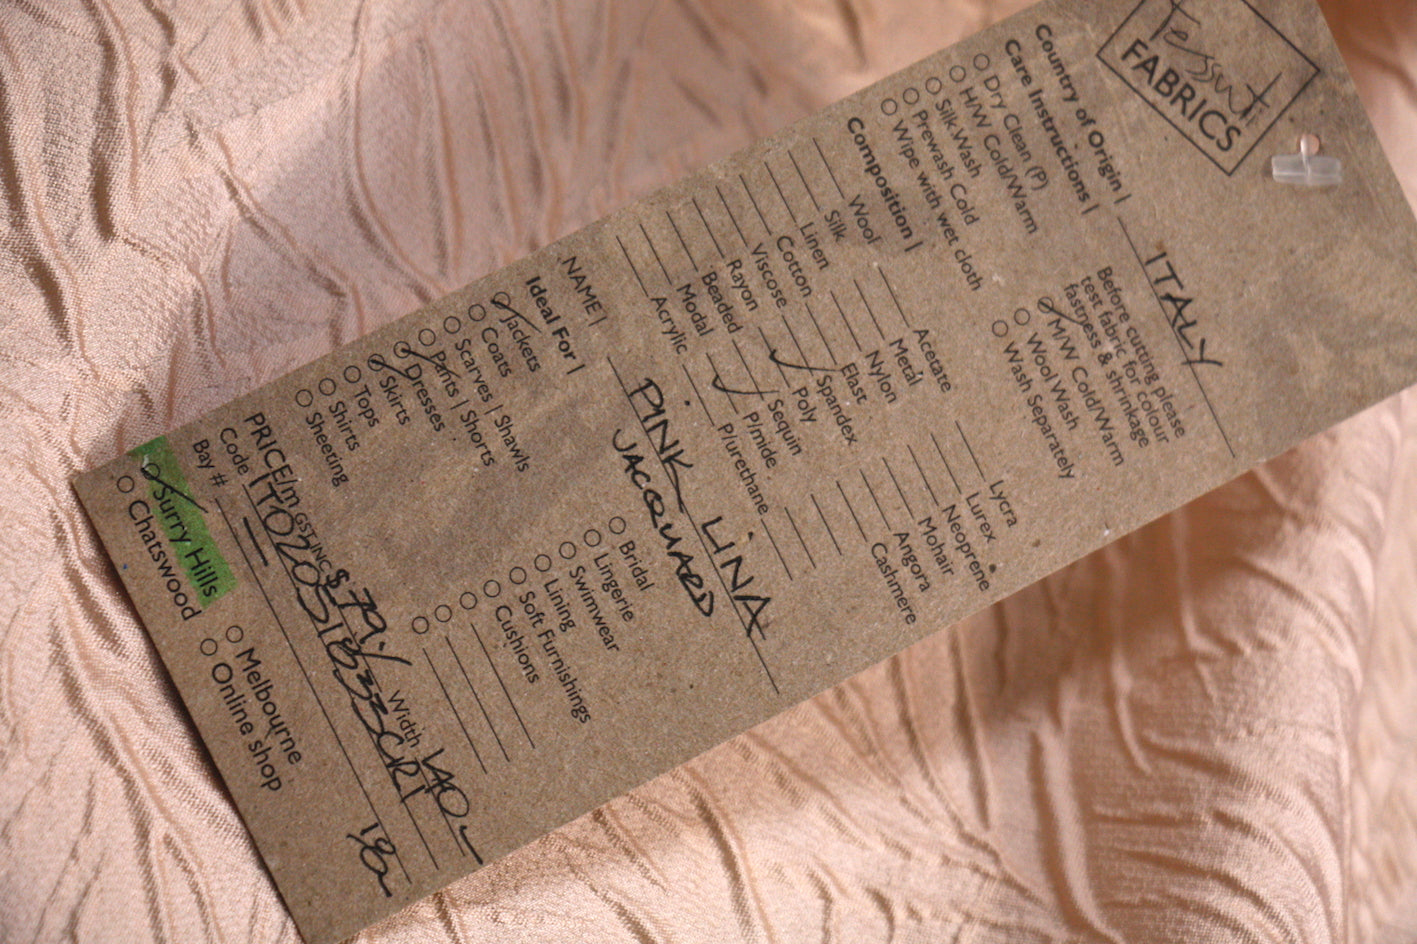 Tessuti
FABRICS
Country of Origin | ITALY
Care Instructions |
Dry Clean (P)
H/W Cold/Warm
Silk Wash
Prewash Cold
Wipe with wet cloth
Before cutting please
test fabric for colour
fastness & shrinkage
M/W Cold/Warm
Wool Wash
Wash Separately
Composition |
Wool
Silk
Linen
Cotton
Viscose
Rayon
Beaded
Modal
Acrylic
Acetate
Metal
Nylon
Elast
Spandex
Poly
Sequin
P/mide
P/urethane
Lycra
Lurex
Neoprene
Mohair
Angora
Cashmere
NAME | PINK LINA
JACQUARD
Ideal For |
Jackets
Coats
Scarves | Shawls
Pants | Shorts
Dresses
Skirts
Tops
Shirts
Sheeting
Bridal
Lingerie
Swimwear
Lining
Soft Furnishings
Cushions
PRICE/m GST INC $79 Width 140
Code
Bay #
Surry Hills
Chatswood
Melbourne
Online shop